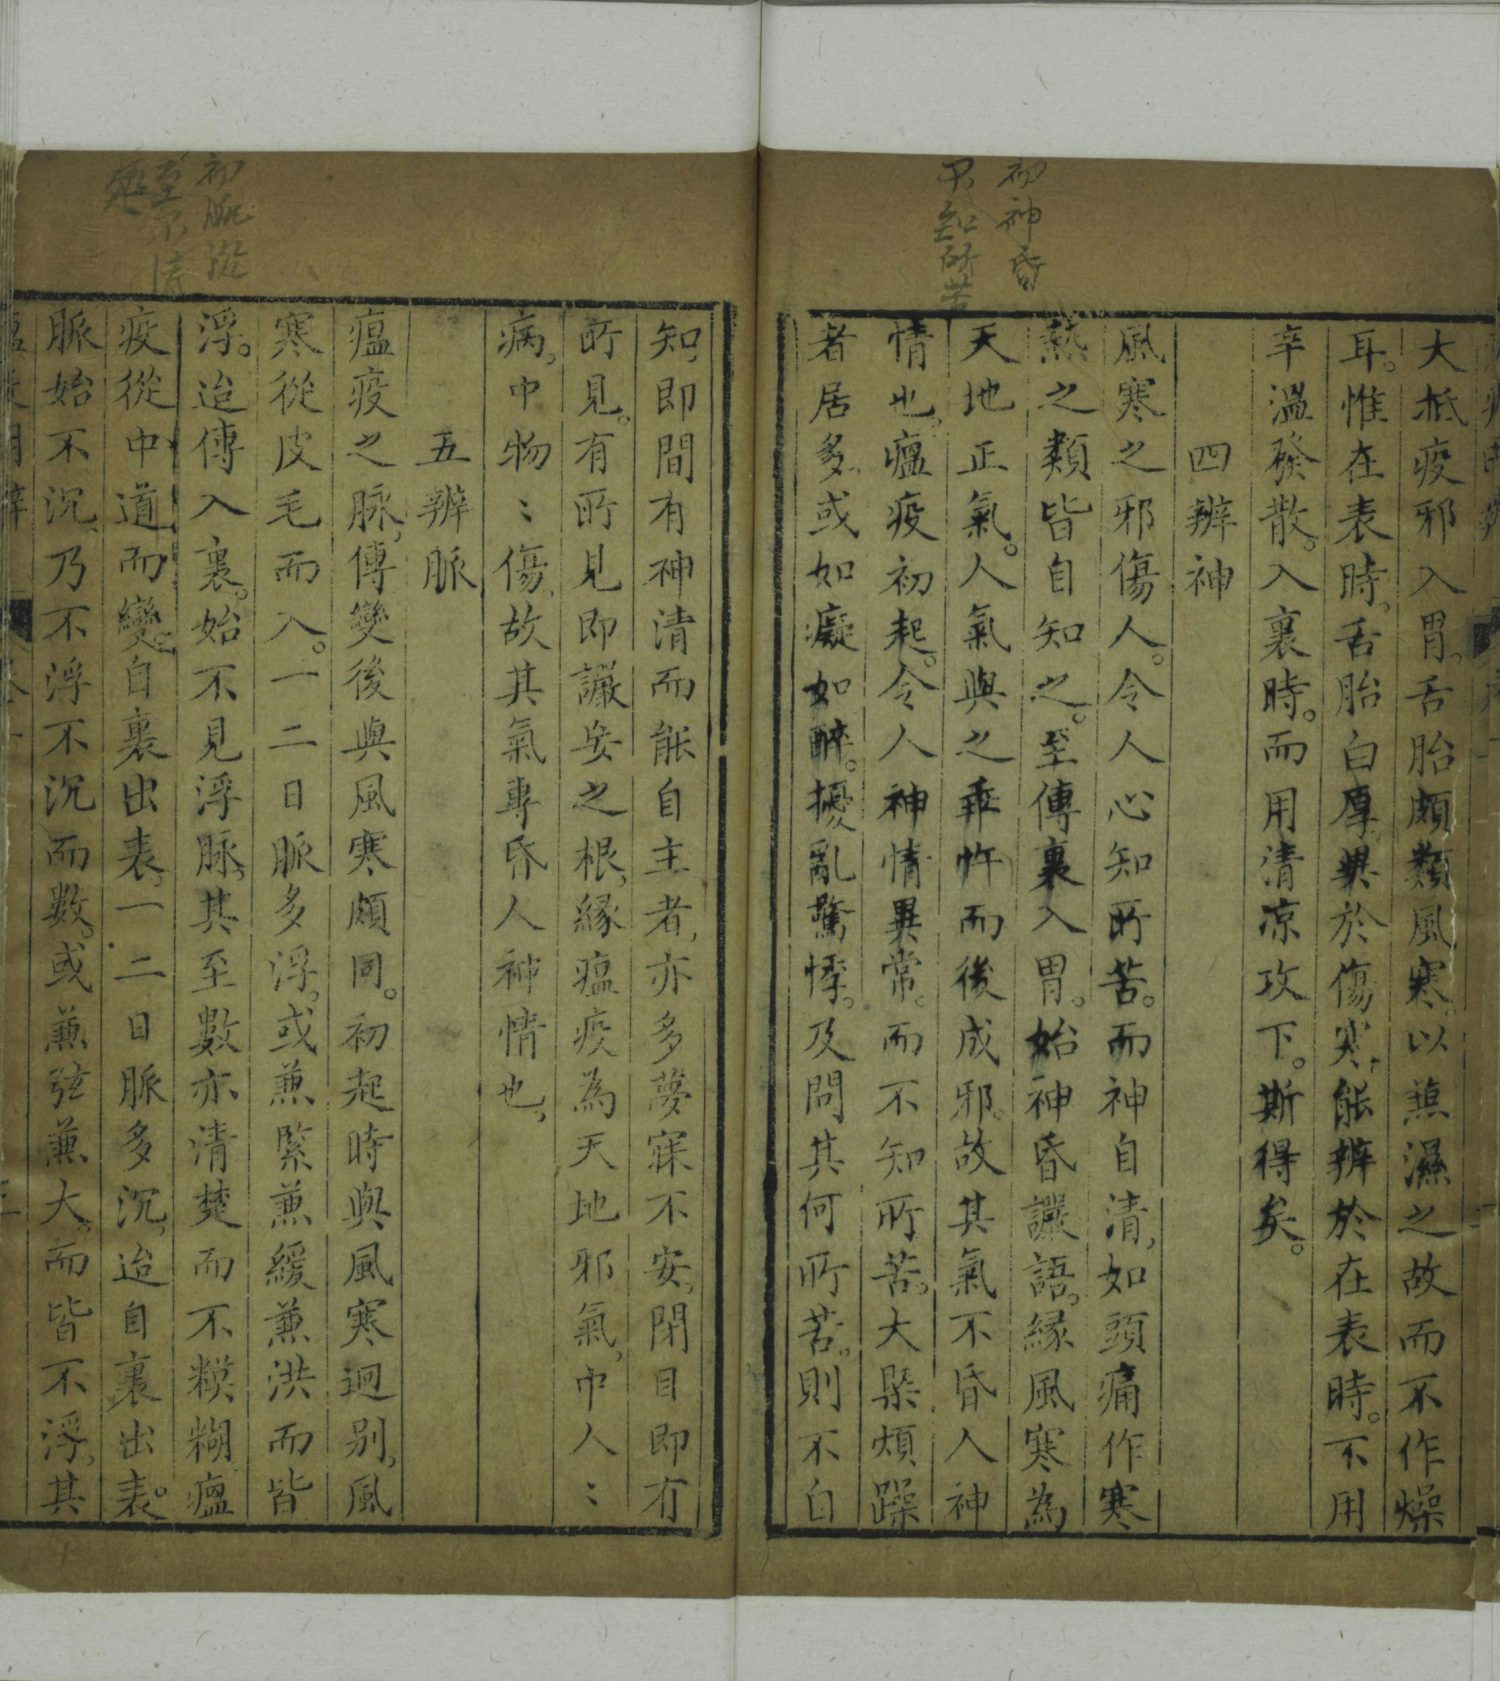 初神昏
不知所苦
大抵疫邪入胃。舌胎頗類風寒。以兼濕之故而不作燥
耳。惟在表時。舌胎白厚。異於傷寒。能辨於在表時。不用
辛溫發散。入裏時。而用清凉攻下。斯得矣。
四辨神
風寒之邪傷人。令人心知所苦。而神自清。如頭痛作寒
熱之類皆自知之。至傳裏入胃。始神昏讝語。緣風寒為
天地正氣。人氣與之乖忤而後成邪。故其氣不昏人神
情也。瘟疫初起。令人神情異常。而不知所苦。大槩煩躁
者居多。或如癡如醉。擾亂驚悸。及問其何所苦。則不自
知。即間有神清而能自主者。亦多夢寐不安。閉目即有
所見。有所見即讝妄之根。緣瘟疫為天地邪氣。中人〻
病。中物〻傷。故其氣專昏人神情也。
五辨脈
瘟疫之脉。傳變後與風寒頗同。初起時與風寒迥别。風
寒從皮毛而入。一二日脈多浮。或兼緊兼緩兼洪而皆
浮。迨傳入裏。始不見浮脉。其至數亦清楚而不糢糊瘟
疫從中道而變。自裏出表。一二日脈多沉。迨自裏出表。
脈始不沉。乃不浮不沉而數。或兼弦兼大。而皆不浮。其
初脈沉
至不清